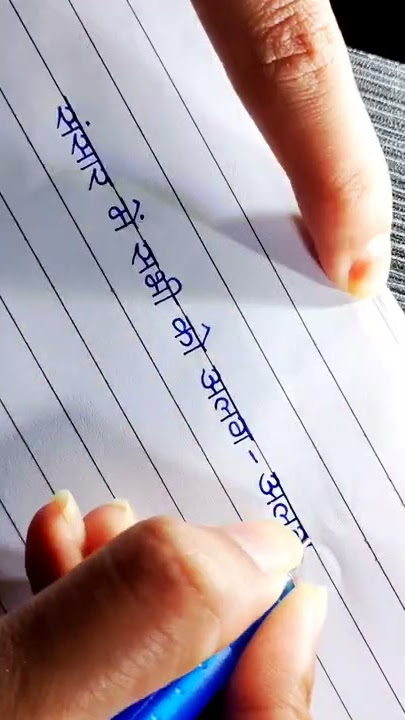 संसार में सभी को अलग - अलग